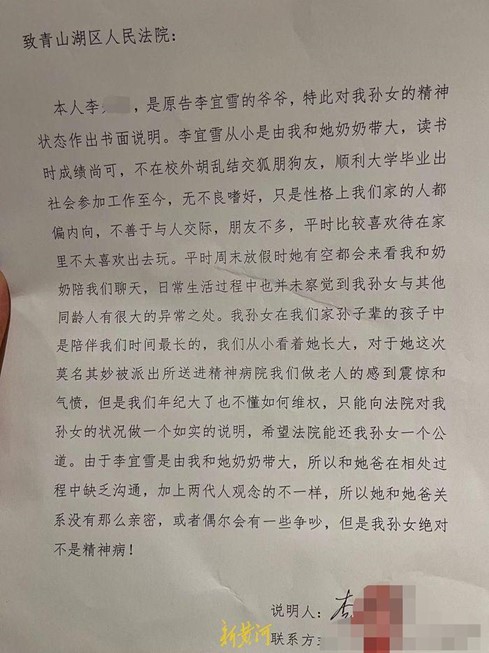 致青山湖区人民法院：
本人李，是原告李宜雪的爷爷，特此对我孙女的精神
状态作出书面说明。李宜雪从小是由我和她奶奶带大，读书
时成绩尚可，不在校外胡乱结交狐朋狗友，顺利大学毕业出
社会参加工作至今，无不良嗜好，只是性格上我们家的人都
偏内向，不善于与人交际，朋友不多，平时比较喜欢待在家
里不太喜欢出去玩。平时周末放假时她有空都会来看我和奶
奶陪我们聊天，日常生活过程中也并未察觉到我孙女与其他
同龄人有很大的异常之处。我孙女在我们家孙子辈的孩子中
是陪伴我们时间最长的，我们从小看着她长大，对于她这次
莫名其妙被派出所送进精神病院我们做老人的感到震惊和
气愤，但是我们年纪大了也不懂如何维权，只能向法院对我
孙女的状况做一个如实的说明，希望法院能还我孙女一个公
道。由于李宜雪是由我和她奶奶带大，所以和她爸在相处过
程中缺乏沟通，加上两代人观念的不一样，所以她和她爸关
系没有那么亲密，或者偶尔会有一些争吵，但是我孙女绝对
不是精神病！
说明人：李
联系方式
新黄河